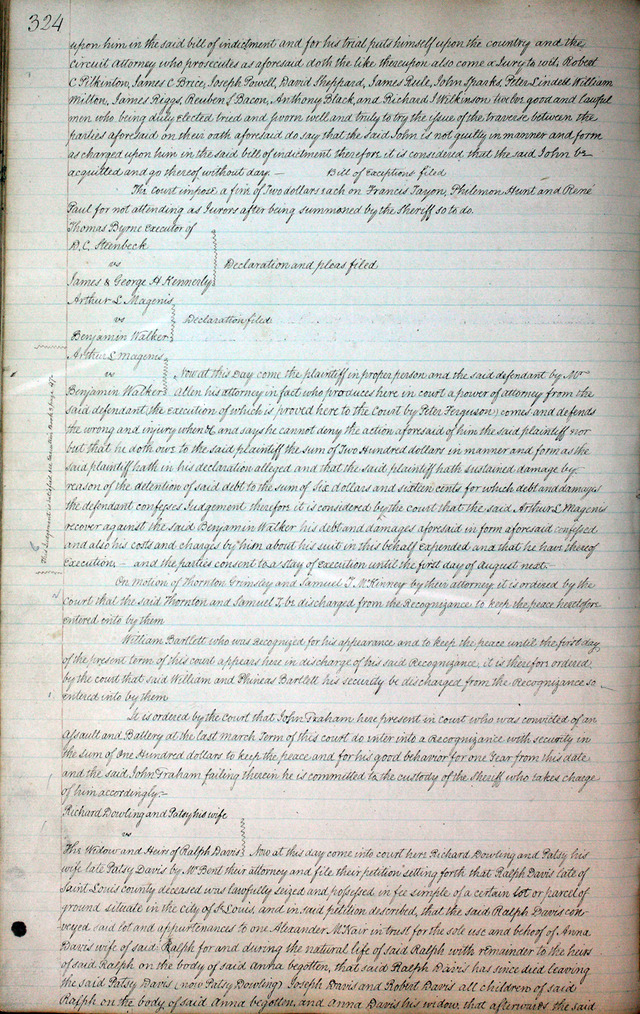 324
upon him in the said bill of indictment and for his trial puts himself upon the country and the
circuit attorney who prosecutes as aforesaid doth the like thereupon also come a Jury to wit, Robert
C Pilkinton, James C Brice, Joseph Powell, David Sheppard, James Rule, John Sparks, Peter Lindell William
Milton, James Riggs, Reuben J Bacon, Anthony Black, and Richard J Wilkinson twelve good and lawful
men who being duly elected tried and sworn well and truly to try the issue of the traverse between the
parties aforesaid on their oath aforesaid do say that the said John is not guilty in manner and form
as charged upon him in the said bill of indictment therefore it is considered that the said John be
acquitted and go thereof without day. — Bill of Exceptions filed
The Court impose a fine of Two dollars each on Francis Tayon, Philemon Hunt and René
Paul for not attending as Jurors after being summoned by the Sheriff so to do.
Thomas Byrne Executor of
D. C. Steinbeck
vs Declaration and pleas filed
James & George H Kennerly
Arthur L Magenis
vs Declaration filed
Benjamin Walker
Arthur L Magenis
vs Now at this Day come the plaintiff in proper person and the said defendant by Mr
Benjamin Walker Allen his attorney in fact who produces here in court a power of attorney from the
said defendant (the execution of which is proved here to the Court by Peter Ferguson) comes and defends
the wrong and injury when &c and says he cannot deny the action aforesaid of him the said plaintiff nor
but that he doth owe to the said plaintiff the sum of Two Hundred dollars in manner and form as the
said plaintiff hath in his declaration alleged and that the said plaintiff hath sustained damage by
reason of the detention of said debt to the sum of Six dollars and sixteen cents for which debt and damages
the defendant confesses Judgement therefore it is considered by the court that the said Arthur L Magenis
recover against the said Benjamin Walker his debt and damages aforesaid in form aforesaid confessed
and also his costs and charges by him about his suit in this behalf expended and that he have thereof
execution — and the parties consent to a stay of execution until the first day of August next.—
On motion of Thornton Grimsley and Samuel T. McKinney by their attorney it is ordered by the
court that the said Thornton and Samuel T. be discharged from the Recognizance to keep the peace heretofore
entered into by them
William Bartlett who was Recognized for his appearance and to keep the peace until the first day
of the present term of this court appears here in discharge of his said Recognizance, it is therefore ordered
by the court that said William and Phineas Bartlett his security be discharged from the Recognizance so
entered into by them
It is ordered by the Court that John Graham here present in court who was convicted of an
Assault and Battery at the last March Term of this court do enter into a Recognizance with security in
the sum of One Hundred dollars to keep the peace and for his good behavior for one Year from this date
and the said John Graham failing therein he is committed to the custody of the Sheriff who takes charge
of him accordingly.—
Richard Dowling and Patsy his wife
vs
The Widow and Heirs of Ralph Davis Now at this day come into court here Richard Dowling and Patsy his
wife late Patsy Davis by Mr Bent their attorney and file their petition setting forth that Ralph Davis late of
Saint Louis county deceased was lawfully seized and possessed in fee simple of a certain lot or parcel of
ground situate in the city of St Louis and in said petition described, that the said Ralph Davis con-
veyed said lot and appurtenances to one Alexander McNair in trust for the sole use and behoof of Anna
Davis wife of said Ralph for and during the natural life of said Ralph with remainder to the heirs
of said Ralph on the body of said Anna begotten, that said Ralph Davis has since died leaving
the said Patsy Davis (now Patsy Dowling) Joseph Davis and Robert Davis all children of said
Ralph on the body of said Anna begotten, and Anna Davis his widow, that afterwards the said